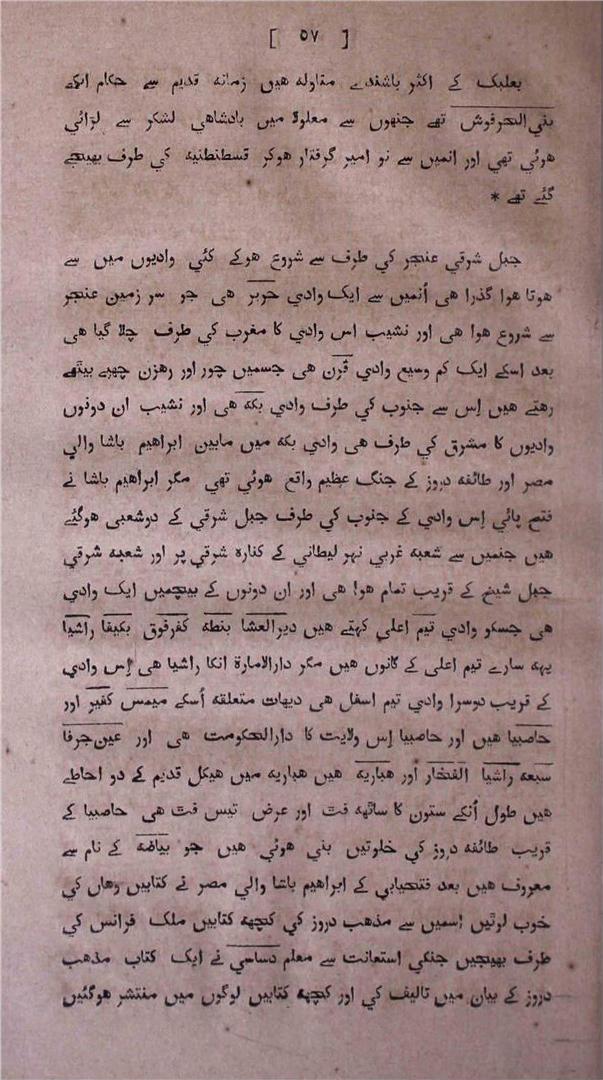 [ ٥٧ ]
بعلبک کے اکثر باشندے مقاولہ هیں زمانہ قدیم سے حکام انکے
بني الحرفوش تھے جنهوں سے معلولا میں بادشاهي لشکر سے لڑائي
هوئي تهي اور انمیں سے نو امیر گرفتار هوکر قسطنطنیہ کي طرف بهیجے
گئے تھے *
جبل شرقي عنجر کي طرف سے شروع هوکے کئي وادیوں میں سے
هوتا هوا گذرا هی اُنمیں سے ایک وادي حریر هی جو سر زمین عنجر
سے شروع هوا هی اور نشیب اس وادي کا مغرب کي طرف چلا گیا هی
بعد اسکے ایک کم وسیع وادي قرن هی جسمیں چور اور رهزن چهپے بیٹھے
رهتے هیں اِس سے جنوب کي طرف وادي بکہ هی اور نشیب ان دونوں
وادیوں کا مشرق کي طرف هی وادي بکہ میں مابین ابراهیم باشا والي
مصر اور طائفہ دروز کے جنگ عظیم واقع هوئي تهي مگر ابراهیم باشا نے
فتح پائي اِس وادي کے جنوب کي طرف جبل شرقي کے دوشعبی هوگئے
هیں جنمیں سے شعبہ غربي نہر لیطاني کے کنارہ شرقي پر اور شعبہ شرقي
جبل شیخ کے قریب تمام هوا هی اور ان دونوں کے بیچمیں ایک وادي
هی جسکو وادي تیم اعلی کہتے هیں دیرالعشا بنطہ کفرقوق بکیفا راشیا
یہہ سارے تیم اعلی کے گانوں هیں مگر دارالامارة انکا راشیا هی اِس وادي
کے قریب دوسرا وادي تیم اسفل هی دیهات متعلقہ اُسکے میمس کفیر اور
حاصبیا هیں اور حاصبیا اِس ولایت کا دارالحکومت هی اور عین‌جرفا
سبعہ راشیا الفخار اور هباریہ هیں هباریہ میں هیکل قدیم کے دو احاطے
هیں طول اُنکے ستون کا ساٹھہ فٹ اور عرض تیس فٹ هی حاصبیا کے
قریب طائفہ دروز کي خلوتیں بني هوئي هیں جو بیاضہ کے نام سے
معروف هیں بعد فتحیابي کے ابراهیم باشا والي مصر نے کتابیں وهاں کي
خوب لوٹیں اِسمیں سے مذهب دروز کي کچھہ کتابیں ملک فرانس کي
طرف بهیجیں جنکي استعانت سے معلم دساسي نے ایک کتاب مذهب
دروز کے بیان میں تالیف کي اور کچھہ کتابیں لوگوں میں منتشر هوگئیں